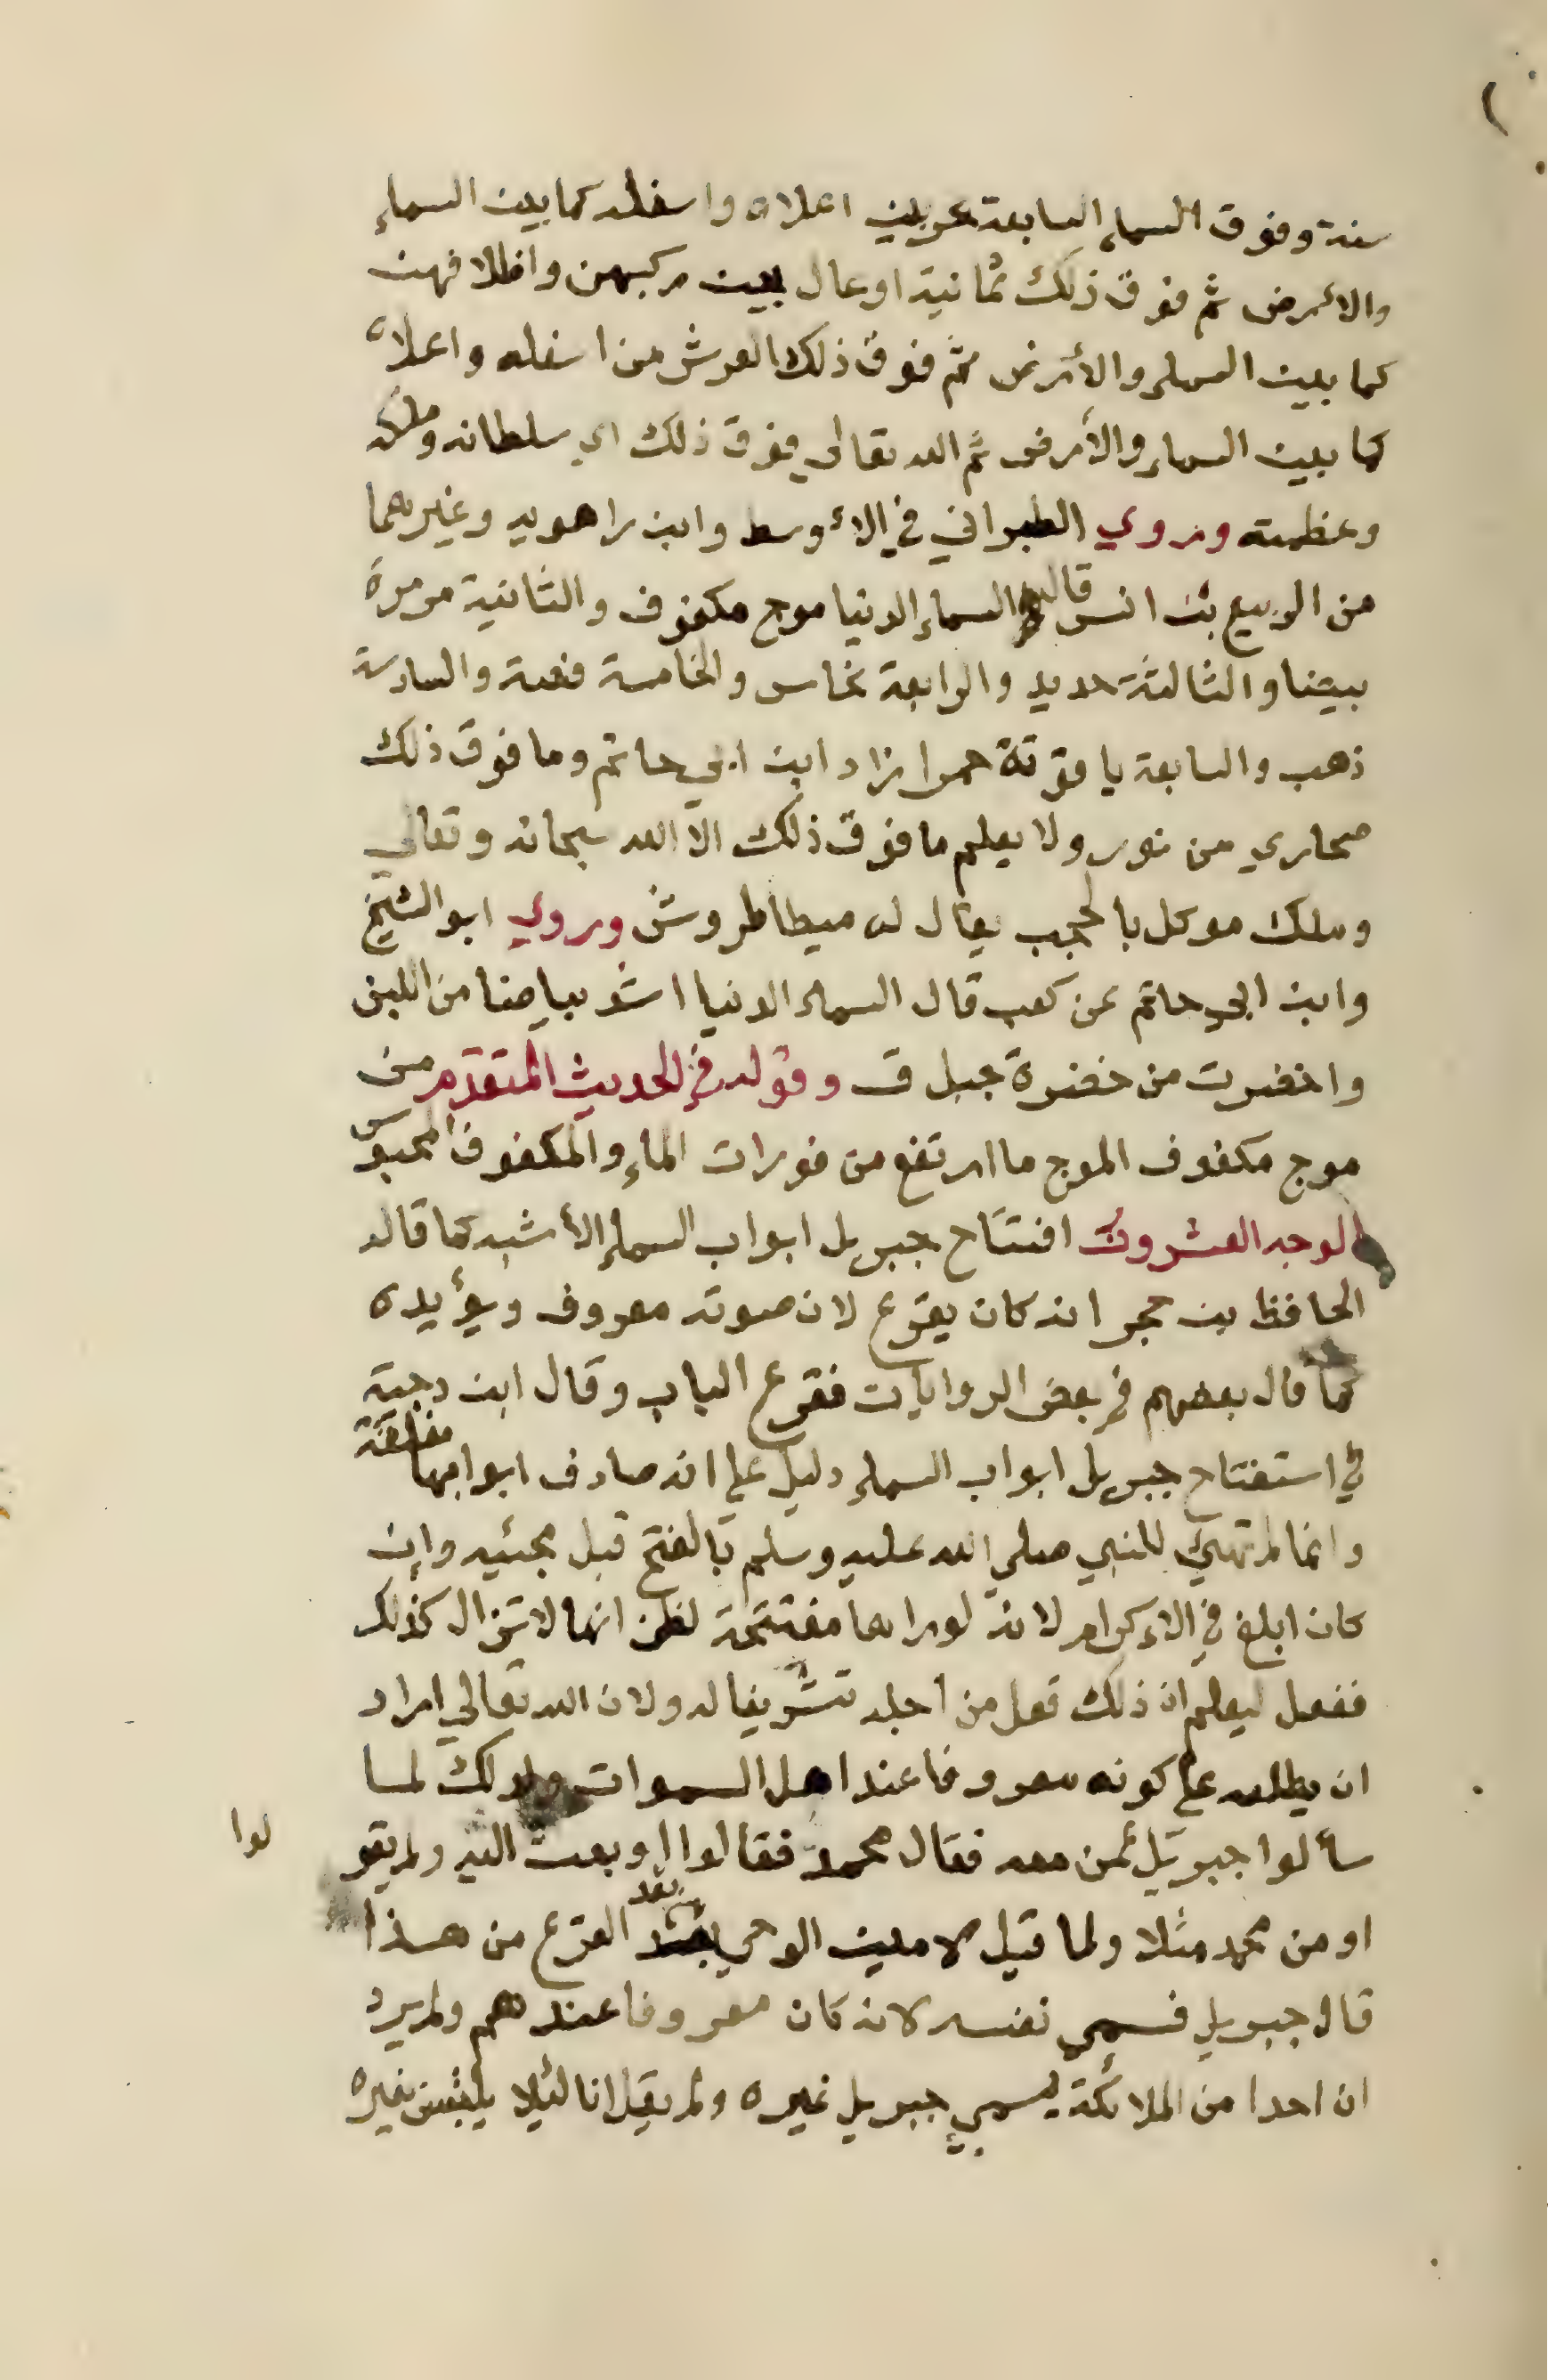 سنة وفوق السماء السابعة بحر بين اعلاه واسفله كما بين السماء
والأرض ثم فوق ذلك ثمانية اوعال بين ركبهن واظلافهن
كما بين السماء والأرض ثم فوق ذلك العرش من اسفله واعلاه
كما بين السماء والأرض ثم الله تعالى فوق ذلك اي سلطانه وملكه
وعظمته وروي الطبراني في الأوسط وابن راهويه وغيرهما
من الربيع بن انس قال السماء الدنيا موج مكفوف والثانية مرمرة
بيضا والثالثة حديد والرابعة نحاس والخامسة فضة والسادسة
ذهب والسابعة ياقوتة حمرا زاد ابن ابي حاتم وما فوق ذلك
صحاري من نور ولا يعلم ما فوق ذلك الا الله سبحانه وتعالي
وملك موكل بالحجب يقال له ميطاطروش وروي ابو الشيخ
وابن ابي حاتم عن كعب قال السماء الدنيا اشد بياضا من اللبن
واخضرت من خضرة جبل ق وقوله في الحديث المتقدم من
موج مكفوف الموج ما ارتفع من فورات الماء والمكفوف المحبوس
الوجه العشرون افتتاح جبريل ابواب السماء الأشبه كما قاله
الحافظ بن حجر انه كان يقرع لان صوته معروف ويؤيده
كما قال بعضهم في بعض الروايات فقرع الباب وقال ابن دحية
في استفتاح جبريل ابواب السماء دليل على انه صادف ابوابها مغلقة
وانما لم تهيئ للنبي صلى الله عليه وسلم بالفتح قبل مجئيه وإن
كان ابلغ في الاكرام لانه لو راها مفتتحة لظن انها لا تزال كذلك
ففعل ليعلم ان ذلك فعل من اجله تشريفا له ولان الله تعالي اراد
ان يطلعه على كونه معروفا عند اهل السموات ولذلك لما
سألوا جبريل أمن معه فقال محمد فقالوا او بعث اليه ولم يقو
لوا
او من محمد مثلا ولما قيل لامين الوحي بعد القرع من هذا
قال جبريل فسمي نفسه لانه كان معروفا عندهم ولم يرد
ان احدا من الملائكة يسمي جبريل غيره ولم يقل انا لئلا يلتبس بغيره